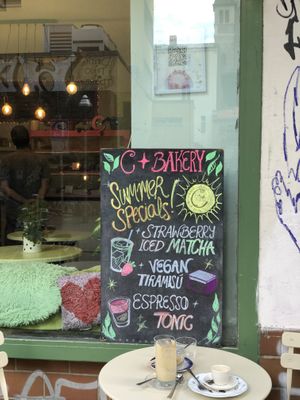 C + BAKERY
SUMMER
Specials!
+ STRAWBERRY
ICED MATCHA
+ VEGAN
TIRAMISÚ
ESPRESSO +
TONIC